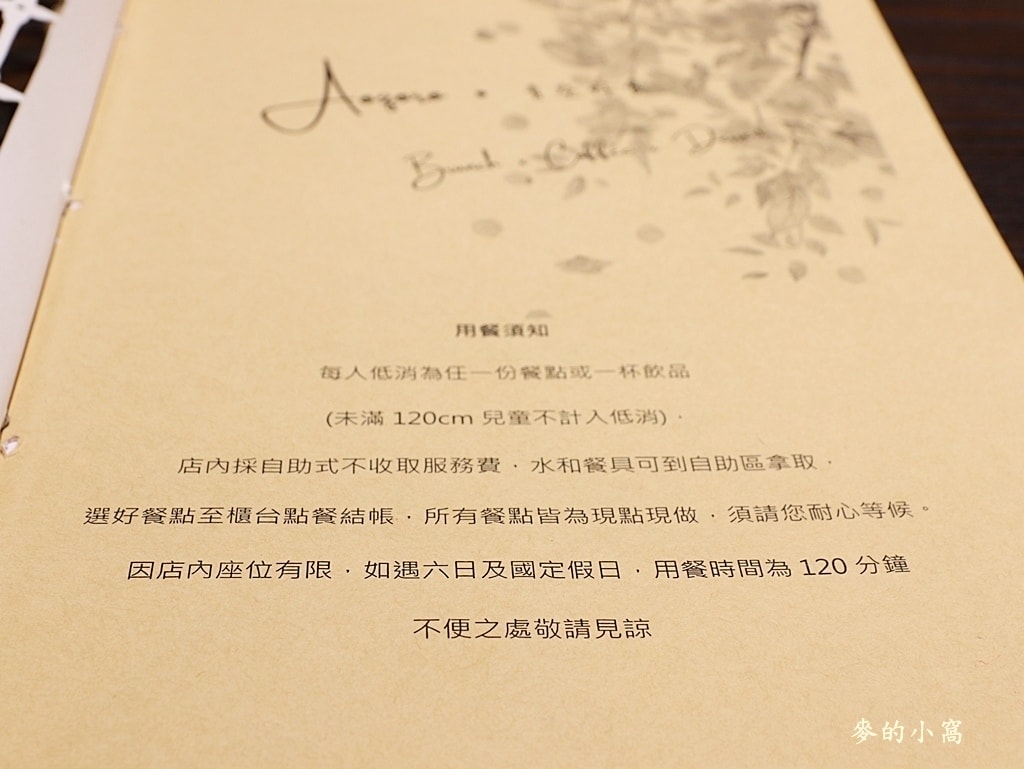 Brunch • Coffee • Dessert
用餐須知
每人低消為任一份餐點或一杯飲品
(未滿 120cm 兒童不計入低消)．
店內採自助式不收取服務費．水和餐具可到自助區拿取．
選好餐點至櫃台點餐結帳．所有餐點皆為現點現做．須請您耐心等候。
因店內座位有限．如遇六日及國定假日．用餐時間為 120 分鐘
不便之處敬請見諒
麥的小窩